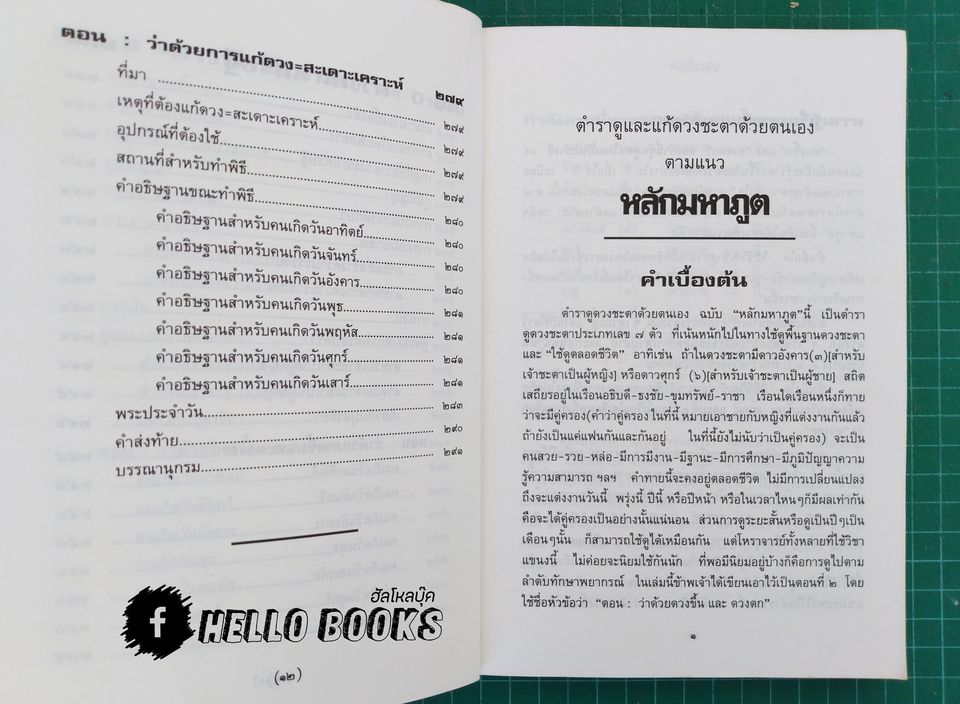 ตอน : ว่าด้วยการแก้ดวง=สะเดาะเคราะห์ ๒๗๙
ที่มา ................................................ ๒๗๙
เหตุที่ต้องแก้ดวง=สะเดาะเคราะห์................ ๒๗๙
อุปกรณ์ที่ต้องใช้................................ ๒๗๙
สถานที่สำหรับทำพิธี............................ ๒๗๙
คำอธิษฐานขณะทำพิธี............................ ๒๘๐
คำอธิษฐานสำหรับคนเกิดวันอาทิตย์................ ๒๘๐
คำอธิษฐานสำหรับคนเกิดวันจันทร์................ ๒๘๐
คำอธิษฐานสำหรับคนเกิดวันอังคาร................ ๒๘๐
คำอธิษฐานสำหรับคนเกิดวันพุธ................ ๒๘๑
คำอธิษฐานสำหรับคนเกิดวันพฤหัส................ ๒๘๑
คำอธิษฐานสำหรับคนเกิดวันศุกร์................ ๒๘๑
คำอธิษฐานสำหรับคนเกิดวันเสาร์................ ๒๘๑
พระประจำวัน................................ ๒๘๓
คำส่งท้าย................................ ๒๙๐
บรรณานุกรม................................ ๒๙๑
f
ฮัลโหลบุ๊ค
HELLO BOOKS
(๑๒)
ตำราดูและแก้ดวงชะตาด้วยตนเอง
ตามแนว
หลักมหาภูต
คำเบื้องต้น
ตำราดูดวงชะตาด้วยตนเอง ฉบับ “หลักมหาภูต”นี้ เป็นตำรา
ดูดวงชะตาประเภทเลข ๗ ตัว ที่เน้นหนักไปในทางใช้ดูพื้นฐานดวงชะตา
และ “ใช้ดูตลอดชีวิต” อาทิเช่น ถ้าในดวงชะตามีดาวอังคาร(๓)[สำหรับ
เจ้าชะตาเป็นผู้หญิง] หรือดาวศุกร์ (๖)[สำหรับเจ้าชะตาเป็นผู้ชาย] สถิต
เสถียรอยู่ในเรือนอธิบดี-ธงชัย-ขุมทรัพย์-ราชา เรือนใดเรือนหนึ่งก็ทาย
ว่าจะมีคู่ครอง(คำว่าคู่ครอง ในที่นี้ หมายเอาชายกับหญิงที่แต่งงานกันแล้ว
ถ้ายังเป็นแค่แฟนกันและกันอยู่ ในที่นี้ยังไม่นับว่าเป็นคู่ครอง) จะเป็น
คนสวย-รวย-หล่อ-มีการมีงาน-มีฐานะ-มีการศึกษา-มีภูมิปัญญาความ
รู้ความสามารถ ฯลฯ คำทายนี้จะคงอยู่ตลอดชีวิต ไม่มีการเปลี่ยนแปลง
ถึงจะแต่งงานวันนี้ พรุ่งนี้ ปีนี้ หรือปีหน้า หรือในเวลาไหนๆก็มีผลเท่ากัน
คือจะได้คู่ครองเป็นอย่างนั้นแน่นอน ส่วนการดูระยะสั้นหรือดูเป็นปีๆเป็น
เดือนๆนั้น ก็สามารถใช้ดูได้เหมือนกัน แต่โหราจารย์ทั้งหลายที่ใช้วิชา
แขนงนี้ ไม่ค่อยจะนิยมใช้กันนัก ที่พอมีนิยมอยู่บ้างก็คือการดูไปตาม
ลำดับทักษาพยากรณ์ ในเล่มนี้ข้าพเจ้าได้เขียนเอาไว้เป็นตอนที่ ๒ โดย
ใช้ชื่อหัวข้อว่า “ตอน : ว่าด้วยดวงขึ้น และ ดวงตก”
๑